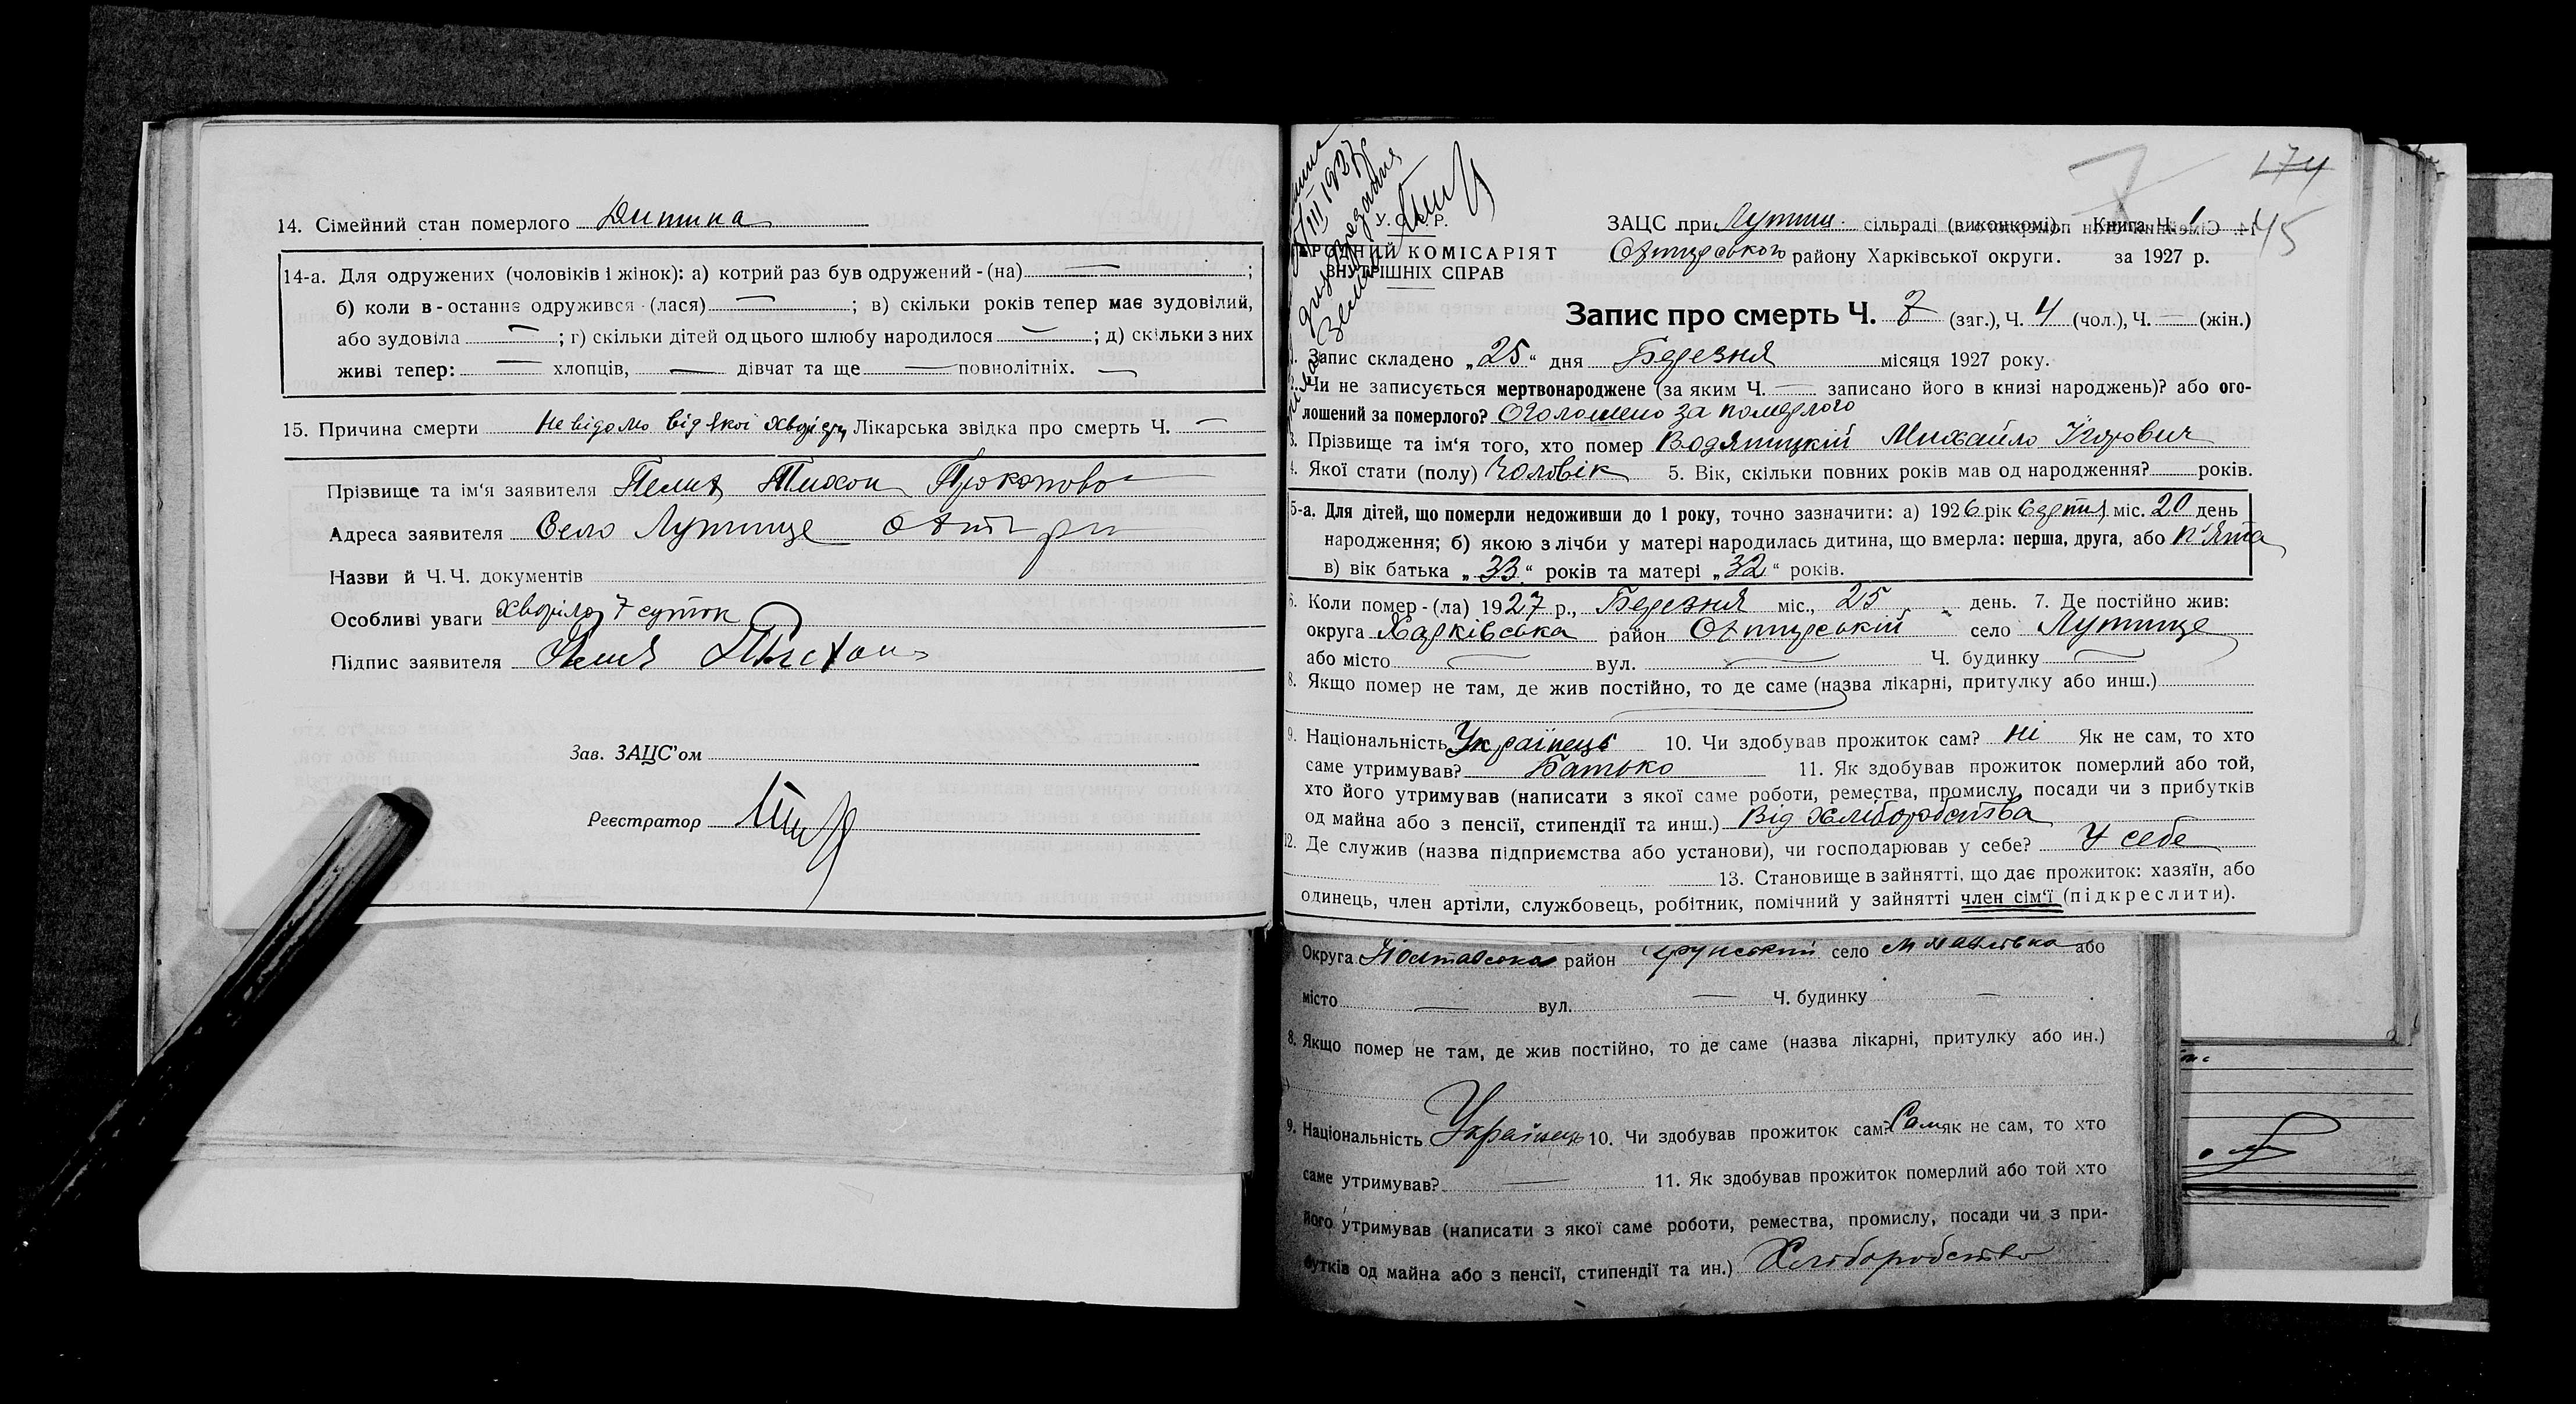 14. Сімейний стан померлого Дитина
14-а. Для одружених (чоловіків і жінок): а) котрий раз був одружений - (на) — ;
б) коли в-останнє одружився - (лася) — ; в) скільки років тепер має зудовілий,
або зудовіла — ; г) скільки дітей од цього шлюбу народилося — ; д) скільки з них
живі тепер: — хлопців, — дівчат та ще — повнолітніх. —
15. Причина смерти Невідомо від якої Лікарська звідка про смерть Ч. —
Прізвище та ім'я заявителя Тихон
Адреса заявителя Село Лутище
Назви й Ч.Ч. документів
Особливі уваги хворіло 7 суток
Підпис заявителя
Зав. ЗАЦС'ом
Реєстратор
174
45
У. С. Р. Р.
НАРОДНИЙ КОМІСАРІЯТ
ВНУТРІШНІХ СПРАВ
ЗАЦС при Лутищ. сільраді (виконкомі). Книга Ч. 1
Охтирського району Харківської округи. за 1927 р.
Запис про смерть Ч. 7 (заг.), Ч. 4 (чол.), Ч. — (жін.)
1. Запис складено „25“ дня Березня місяця 1927 року.
Чи не записується мертвонароджене (за яким Ч. — записано його в книзі народжень)? або ого-
лошений за померлого? Оголошено за померлого
3. Прізвище та ім'я того, хто помер Водяницкій Михайло Ігорович
4. Якої стати (полу) Чоловік 5. Вік, скільки повних років мав од народження? років.
5-а. Для дітей, що померли недоживши до 1 року, точно зазначити: а) 1926 рік міс. 20 день
народження; б) якою з лічби у матері народилась дитина, що вмерла: перша, друга, або п'ята
в) вік батька „33“ років та матері „32“ років.
6. Коли помер - (ла) 1927 р., Березня міс., 25 день. 7. Де постійно жив:
округа Харківська район Охтирській село Лутище
або місто — вул. — Ч. будинку —
8. Якщо помер не там, де жив постійно, то де саме (назва лікарні, притулку або инш.)
9. Національність Українець 10. Чи здобував прожиток сам? ні Як не сам, то хто
саме утримував? Батько 11. Як здобував прожиток померлий або той,
хто його утримував (написати з якої саме роботи, ремества, промислу, посади чи з прибутків
од майна або з пенсії, стипендії та инш.) Від хліборобства
12. Де служив (назва підприємства або установи), чи господарював у себе? У себе
13. Становище в зайнятті, що дає прожиток: хазяїн, або
одинець, член артіли, службовець, робітник, помічний у зайнятті член сім'ї (підкреслити).
Округа Полтавська район село або
місто — вул. — Ч. будинку —
8. Якщо помер не там, де жив постійно, то де саме (назва лікарні, притулку або ин.)
9. Національність Українець 10. Чи здобував прожиток сам? Сам як не сам, то хто
саме утримував? — 11. Як здобував прожиток померлий або той хто
його утримував (написати з якої саме роботи, ремества, промислу, посади чи з при-
бутків од майна або з пенсії, стипендії та ин.) Хліборобство